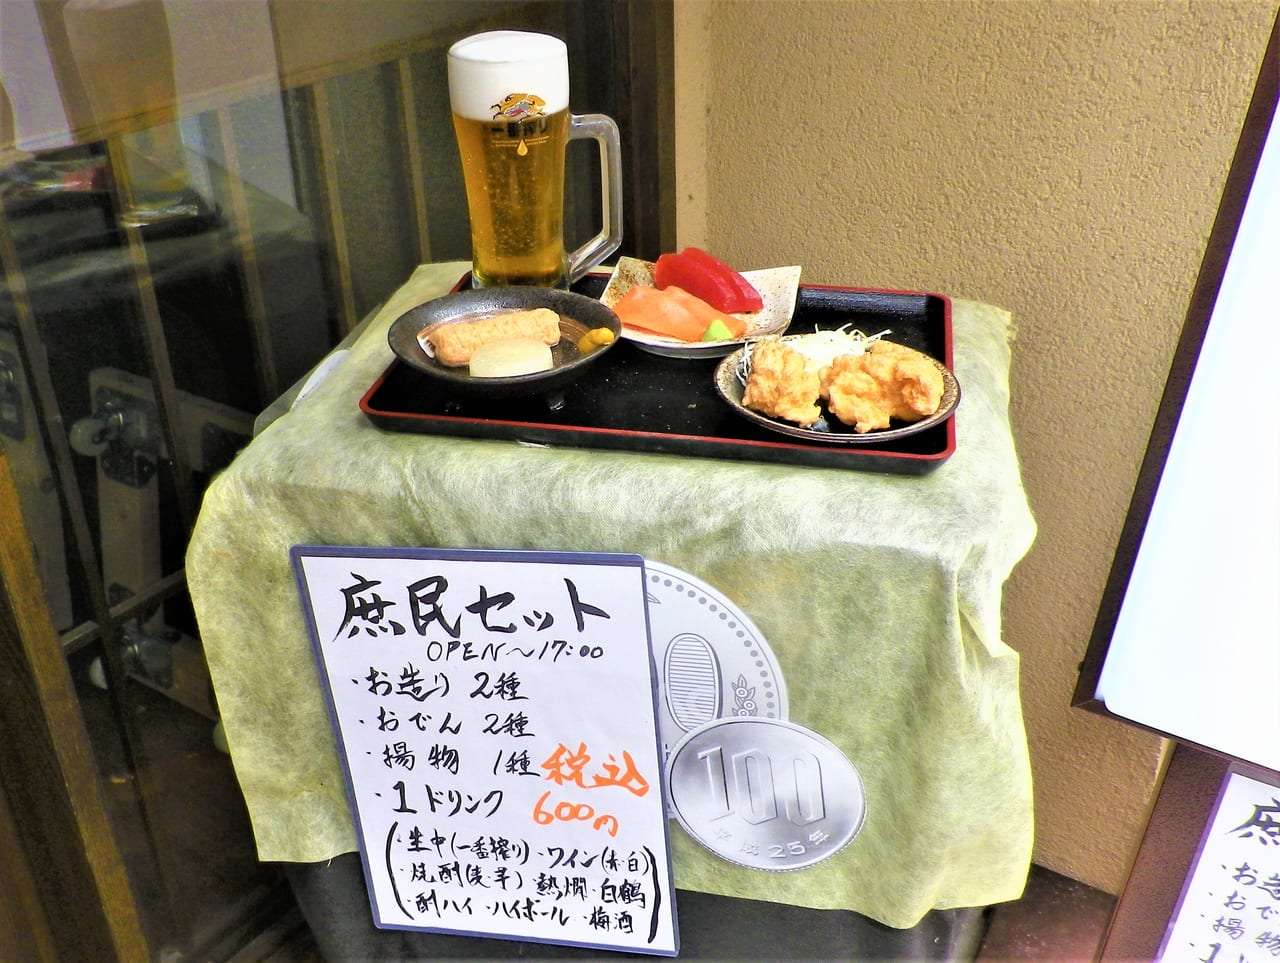 一番搾り
庶民セット
OPEN～17:00
・お造り 2種
・おでん 2種
・揚物 1種 税込
・1ドリンク 600円
(・生中(一番搾り)・ワイン(赤・白)
・焼酎(麦・芋)・熱燗・白鶴
・酎ハイ・ハイボール・梅酒)
100
平成25年
庶
・お造
・おで
・揚
・1ド